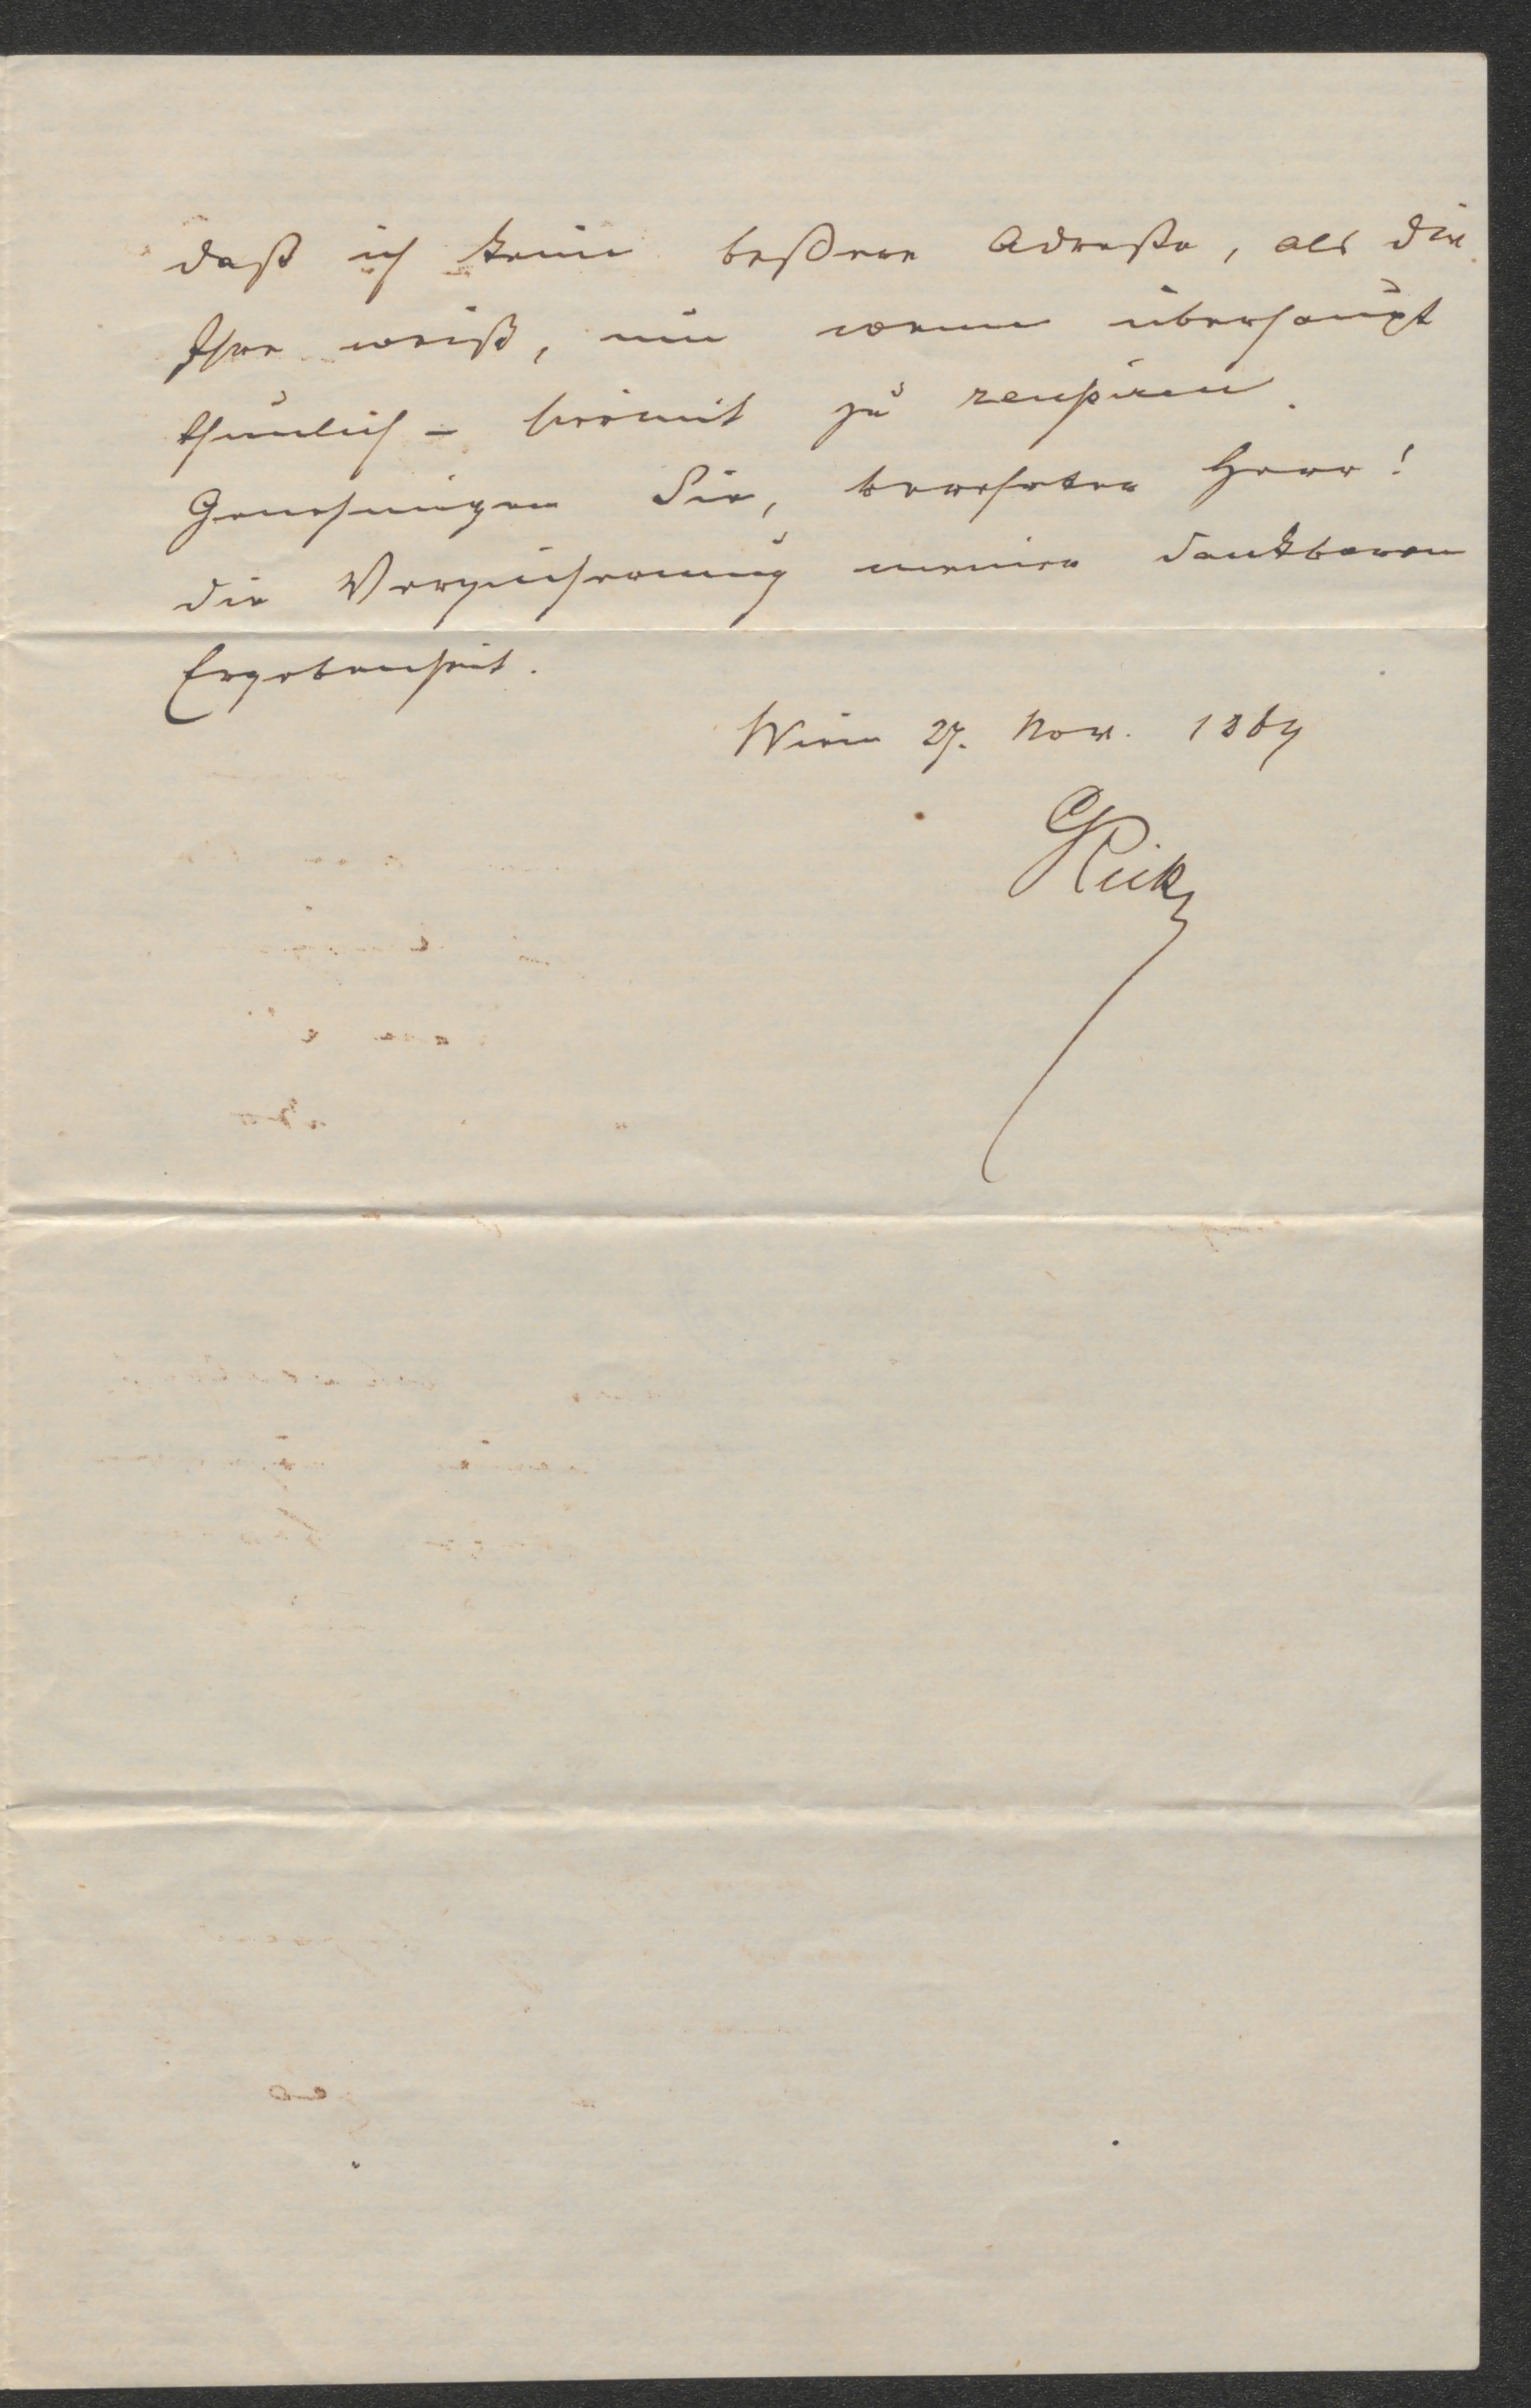 daß ich keine beßere Adreße, als die
Ihre weiß, um wenn überhaupt
thunlich – hiermit zu reussiren.
Genehmigen Sie, verehrter Herr!
die Versicherung meiner dankbaren
Ergebenheit.
Wien 27. Nov. 1869